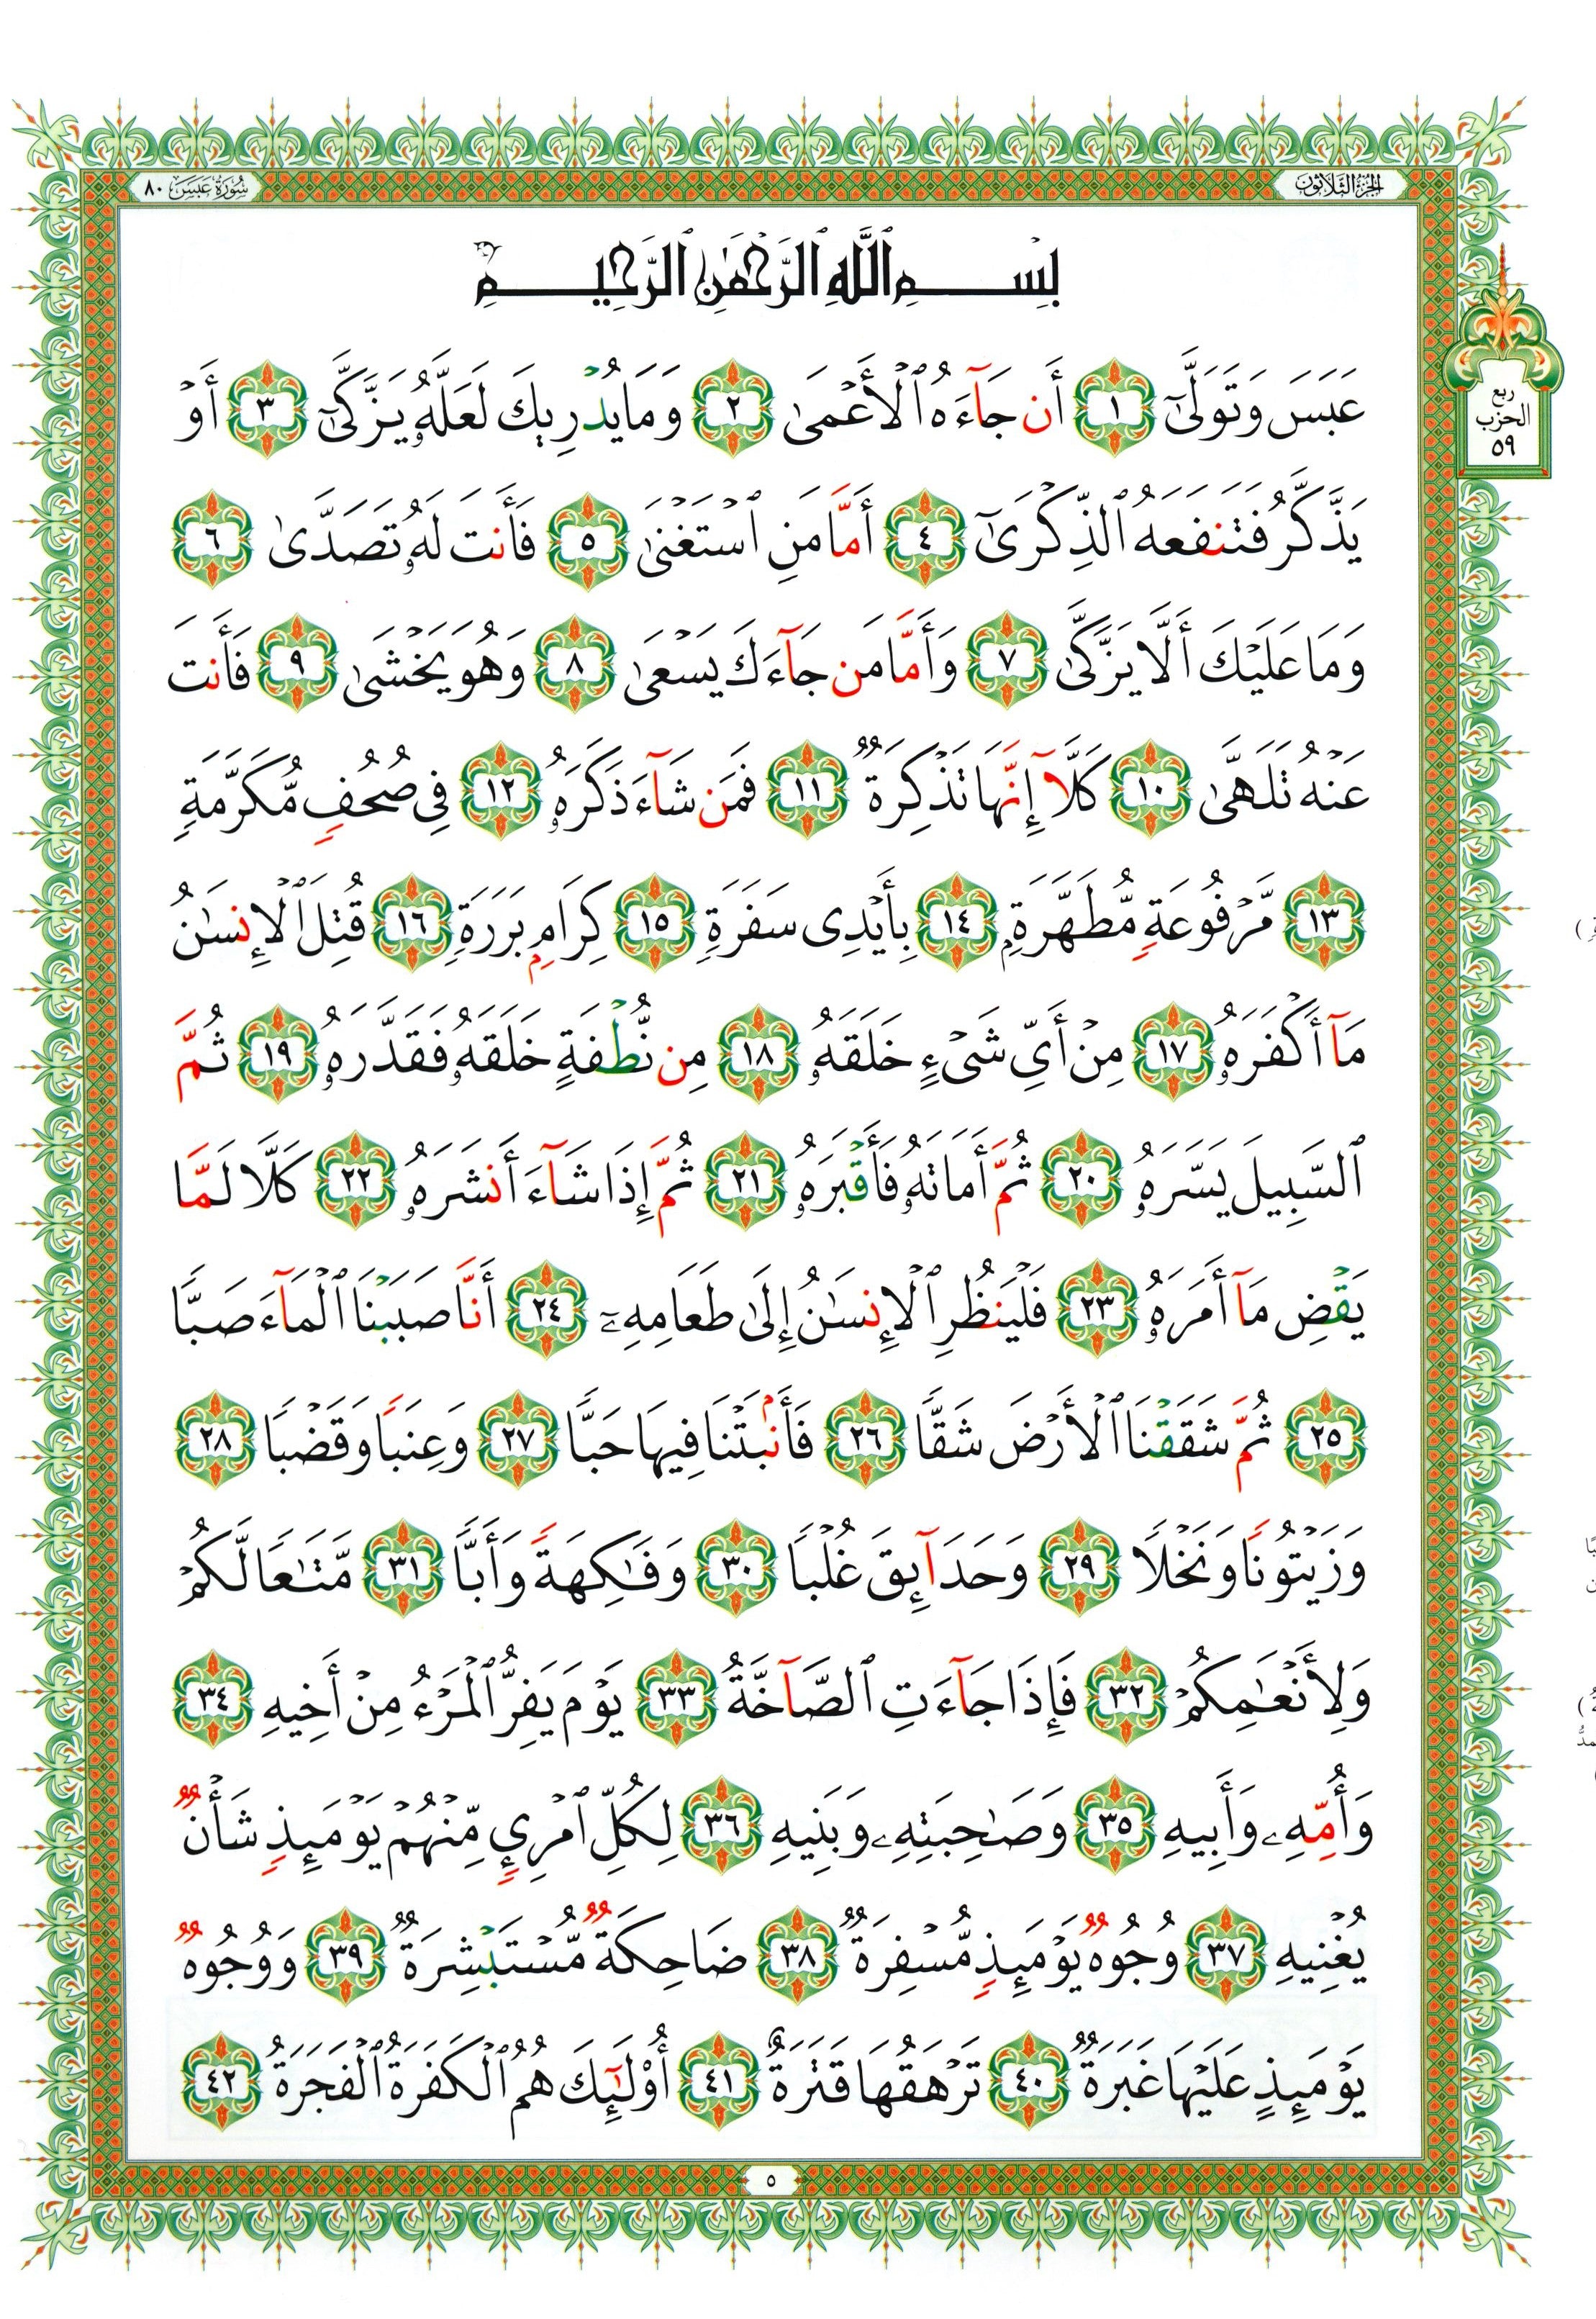 الجزء الثلاثون
سورة عبس ٨٠
بِسْمِ ٱللَّهِ ٱلرَّحْمَٰنِ ٱلرَّحِيمِ
ربع
الحزب
٥٩
عَبَسَ وَتَوَلَّىٰٓ ١ أَن جَآءَهُ ٱلْأَعْمَىٰ ٢ وَمَا يُدْرِيكَ لَعَلَّهُۥ يَزَّكَّىٰٓ ٣ أَوْ
يَذَّكَّرُ فَتَنفَعَهُ ٱلذِّكْرَىٰٓ ٤ أَمَّا مَنِ ٱسْتَغْنَىٰ ٥ فَأَنتَ لَهُۥ تَصَدَّىٰ ٦
وَمَا عَلَيْكَ أَلَّا يَزَّكَّىٰ ٧ وَأَمَّا مَن جَآءَكَ يَسْعَىٰ ٨ وَهُوَ يَخْشَىٰ ٩ فَأَنتَ
عَنْهُ تَلَهَّىٰ ١٠ كَلَّآ إِنَّهَا تَذْكِرَةٌ ١١ فَمَن شَآءَ ذَكَرَهُۥ ١٢ فِى صُحُفٍ مُّكَرَّمَةٍ
١٣ مَّرْفُوعَةٍ مُّطَهَّرَةٍۭ ١٤ بِأَيْدِى سَفَرَةٍ ١٥ كِرَامٍۭ بَرَرَةٍ ١٦ قُتِلَ ٱلْإِنسَٰنُ
مَآ أَكْفَرَهُۥ ١٧ مِنْ أَىِّ شَىْءٍ خَلَقَهُۥ ١٨ مِن نُّطْفَةٍ خَلَقَهُۥ فَقَدَّرَهُۥ ١٩ ثُمَّ
ٱلسَّبِيلَ يَسَّرَهُۥ ٢٠ ثُمَّ أَمَاتَهُۥ فَأَقْبَرَهُۥ ٢١ ثُمَّ إِذَا شَآءَ أَنشَرَهُۥ ٢٢ كَلَّا لَمَّا
يَقْضِ مَآ أَمَرَهُۥ ٢٣ فَلْيَنظُرِ ٱلْإِنسَٰنُ إِلَىٰ طَعَامِهِۦٓ ٢٤ أَنَّا صَبَبْنَا ٱلْمَآءَ صَبًّا
٢٥ ثُمَّ شَقَقْنَا ٱلْأَرْضَ شَقًّا ٢٦ فَأَنۢبَتْنَا فِيهَا حَبًّا ٢٧ وَعِنَبًا وَقَضْبًا ٢٨
وَزَيْتُونًا وَنَخْلًا ٢٩ وَحَدَآئِقَ غُلْبًا ٣٠ وَفَٰكِهَةً وَأَبًّا ٣١ مَّتَٰعًا لَّكُمْ
وَلِأَنْعَٰمِكُمْ ٣٢ فَإِذَا جَآءَتِ ٱلصَّآخَّةُ ٣٣ يَوْمَ يَفِرُّ ٱلْمَرْءُ مِنْ أَخِيهِ ٣٤
وَأُمِّهِۦ وَأَبِيهِ ٣٥ وَصَٰحِبَتِهِۦ وَبَنِيهِ ٣٦ لِكُلِّ ٱمْرِئٍ مِّنْهُمْ يَوْمَئِذٍ شَأْنٌ
يُغْنِيهِ ٣٧ وُجُوهٌ يَوْمَئِذٍ مُّسْفِرَةٌ ٣٨ ضَاحِكَةٌ مُّسْتَبْشِرَةٌ ٣٩ وَوُجُوهٌ
يَوْمَئِذٍ عَلَيْهَا غَبَرَةٌ ٤٠ تَرْهَقُهَا قَتَرَةٌ ٤١ أُو۟لَٰٓئِكَ هُمُ ٱلْكَفَرَةُ ٱلْفَجَرَةُ ٤٢
٥